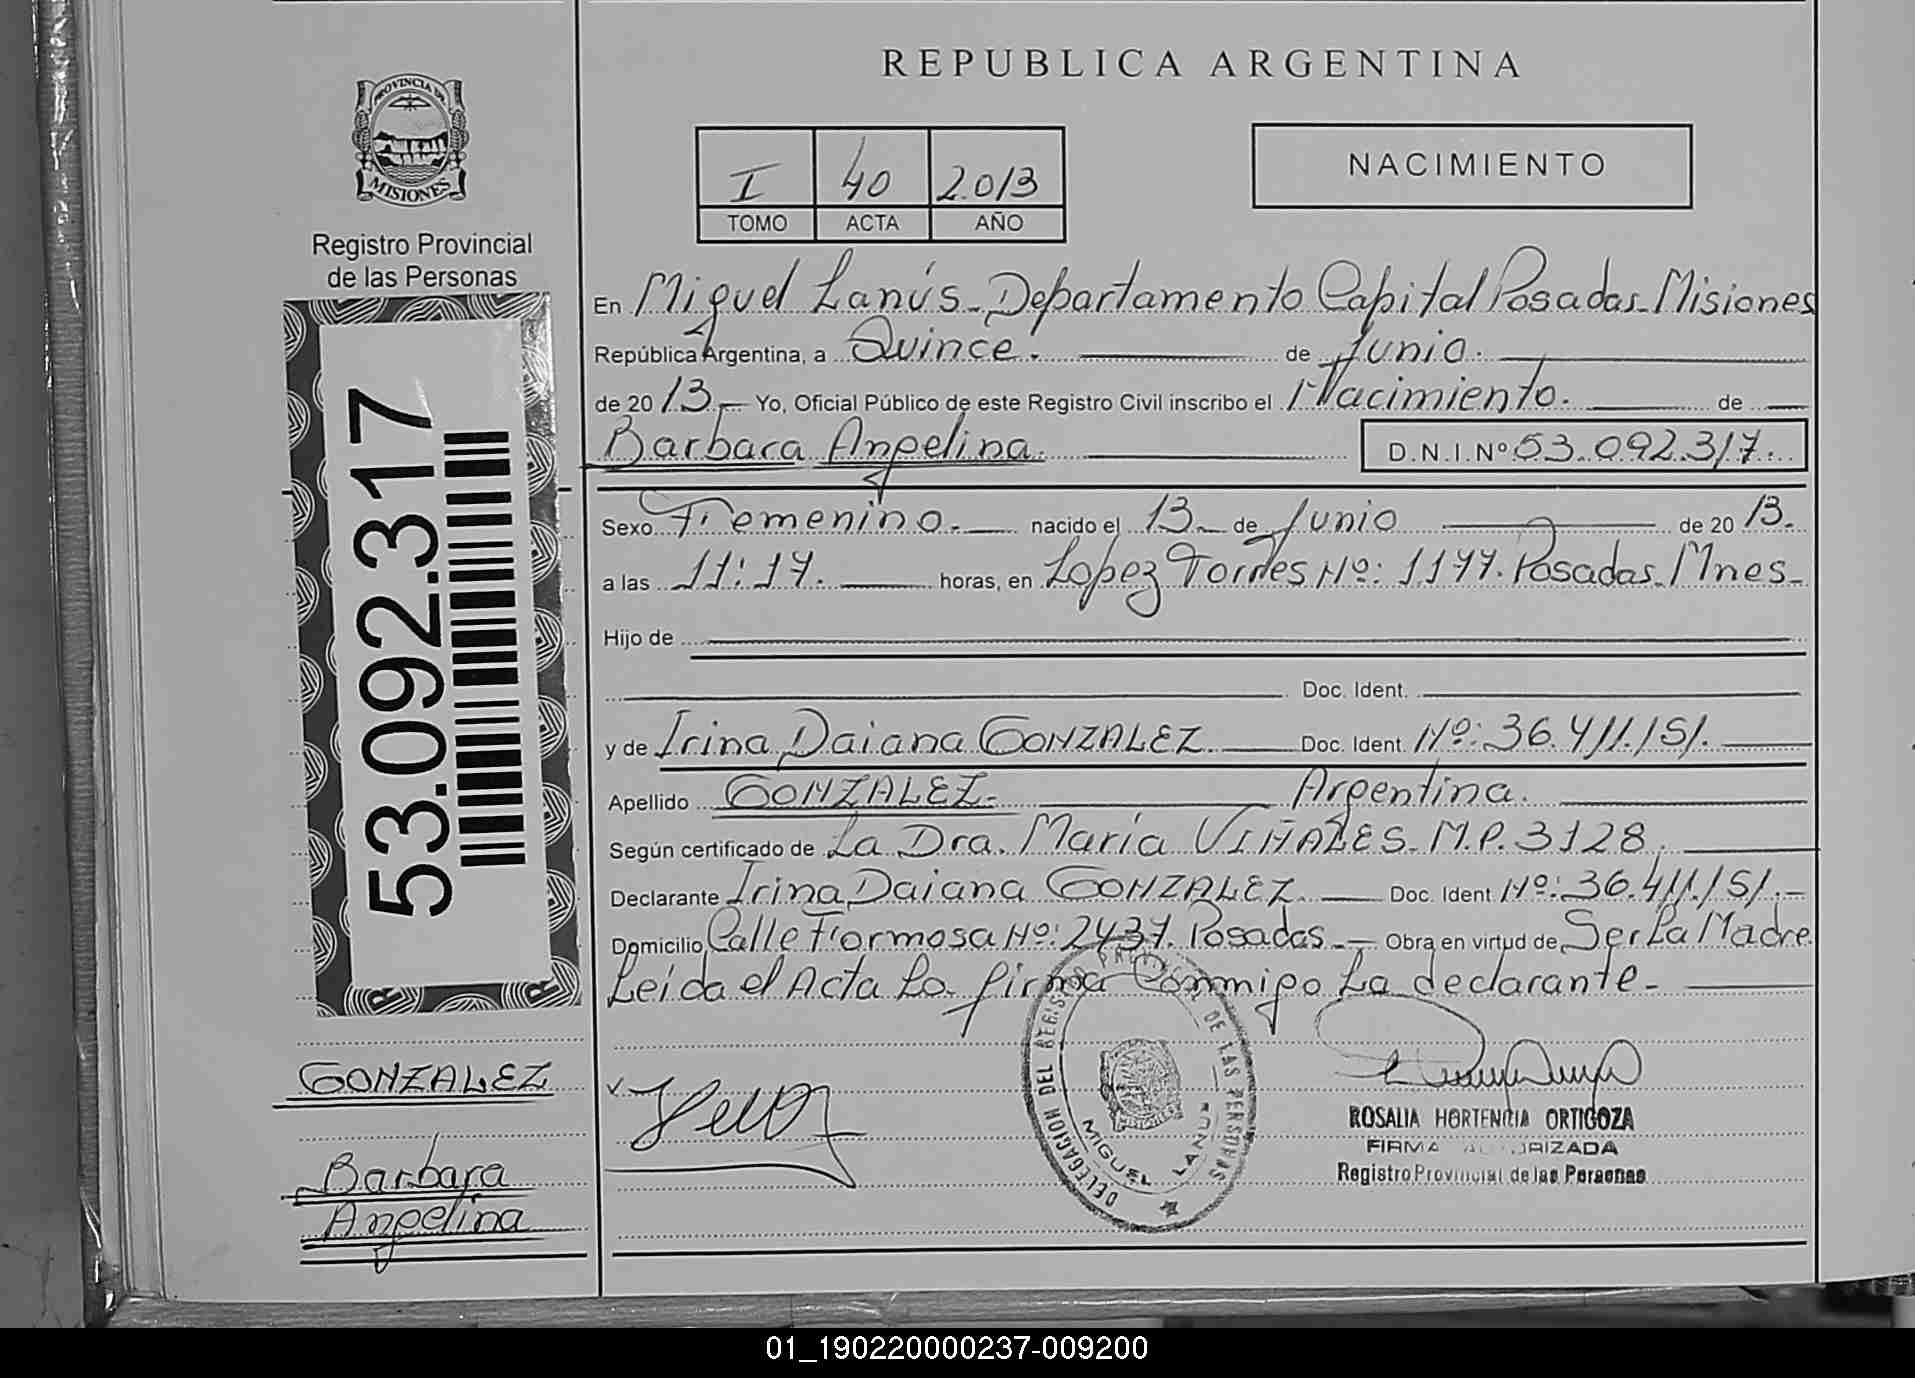 REPUBLICA ARGENTINA
PROVINCIA DE
MISIONES
Registro Provincial
de las Personas
I 40 2.013
TOMO ACTA AÑO
NACIMIENTO
En Miguel Lanús - Departamento Capital Posadas - Misiones
República Argentina, a Quince. de Junio.
de 20 13 - Yo, Oficial Público de este Registro Civil inscribo el Nacimiento. de
Barbara Angelina. D.N.I.Nº 53.092.317.
Sexo Femenino. nacido el 13 de Junio de 20 13.
a las 11:17. horas, en Lopez Torres Nº: 1177. Posadas - Mnes -
Hijo de
Doc. Ident.
y de Irina Daiana GONZALEZ. Doc. Ident. Nº: 36.411.151.
Apellido GONZALEZ - Argentina.
Según certificado de La Dra. María VIÑALES - M.P. 3128.
Declarante Irina Daiana GONZALEZ. Doc. Ident Nº: 36.411.151. -
Domicilio Calle Formosa Nº: 2437. Posadas. - Obra en virtud de Ser La Madre.
Leída el Acta La firma Conmigo La declarante -
53.092.317
GONZALEZ
Barbara
Angelina
DELEGACION DEL REGISTRO PROVINCIAL DE LAS PERSONAS
MIGUEL LANUS
ROSALIA HORTENCIA ORTIGOZA
FIRMA AUTORIZADA
Registro Provincial de las Personas
01_190220000237-009200